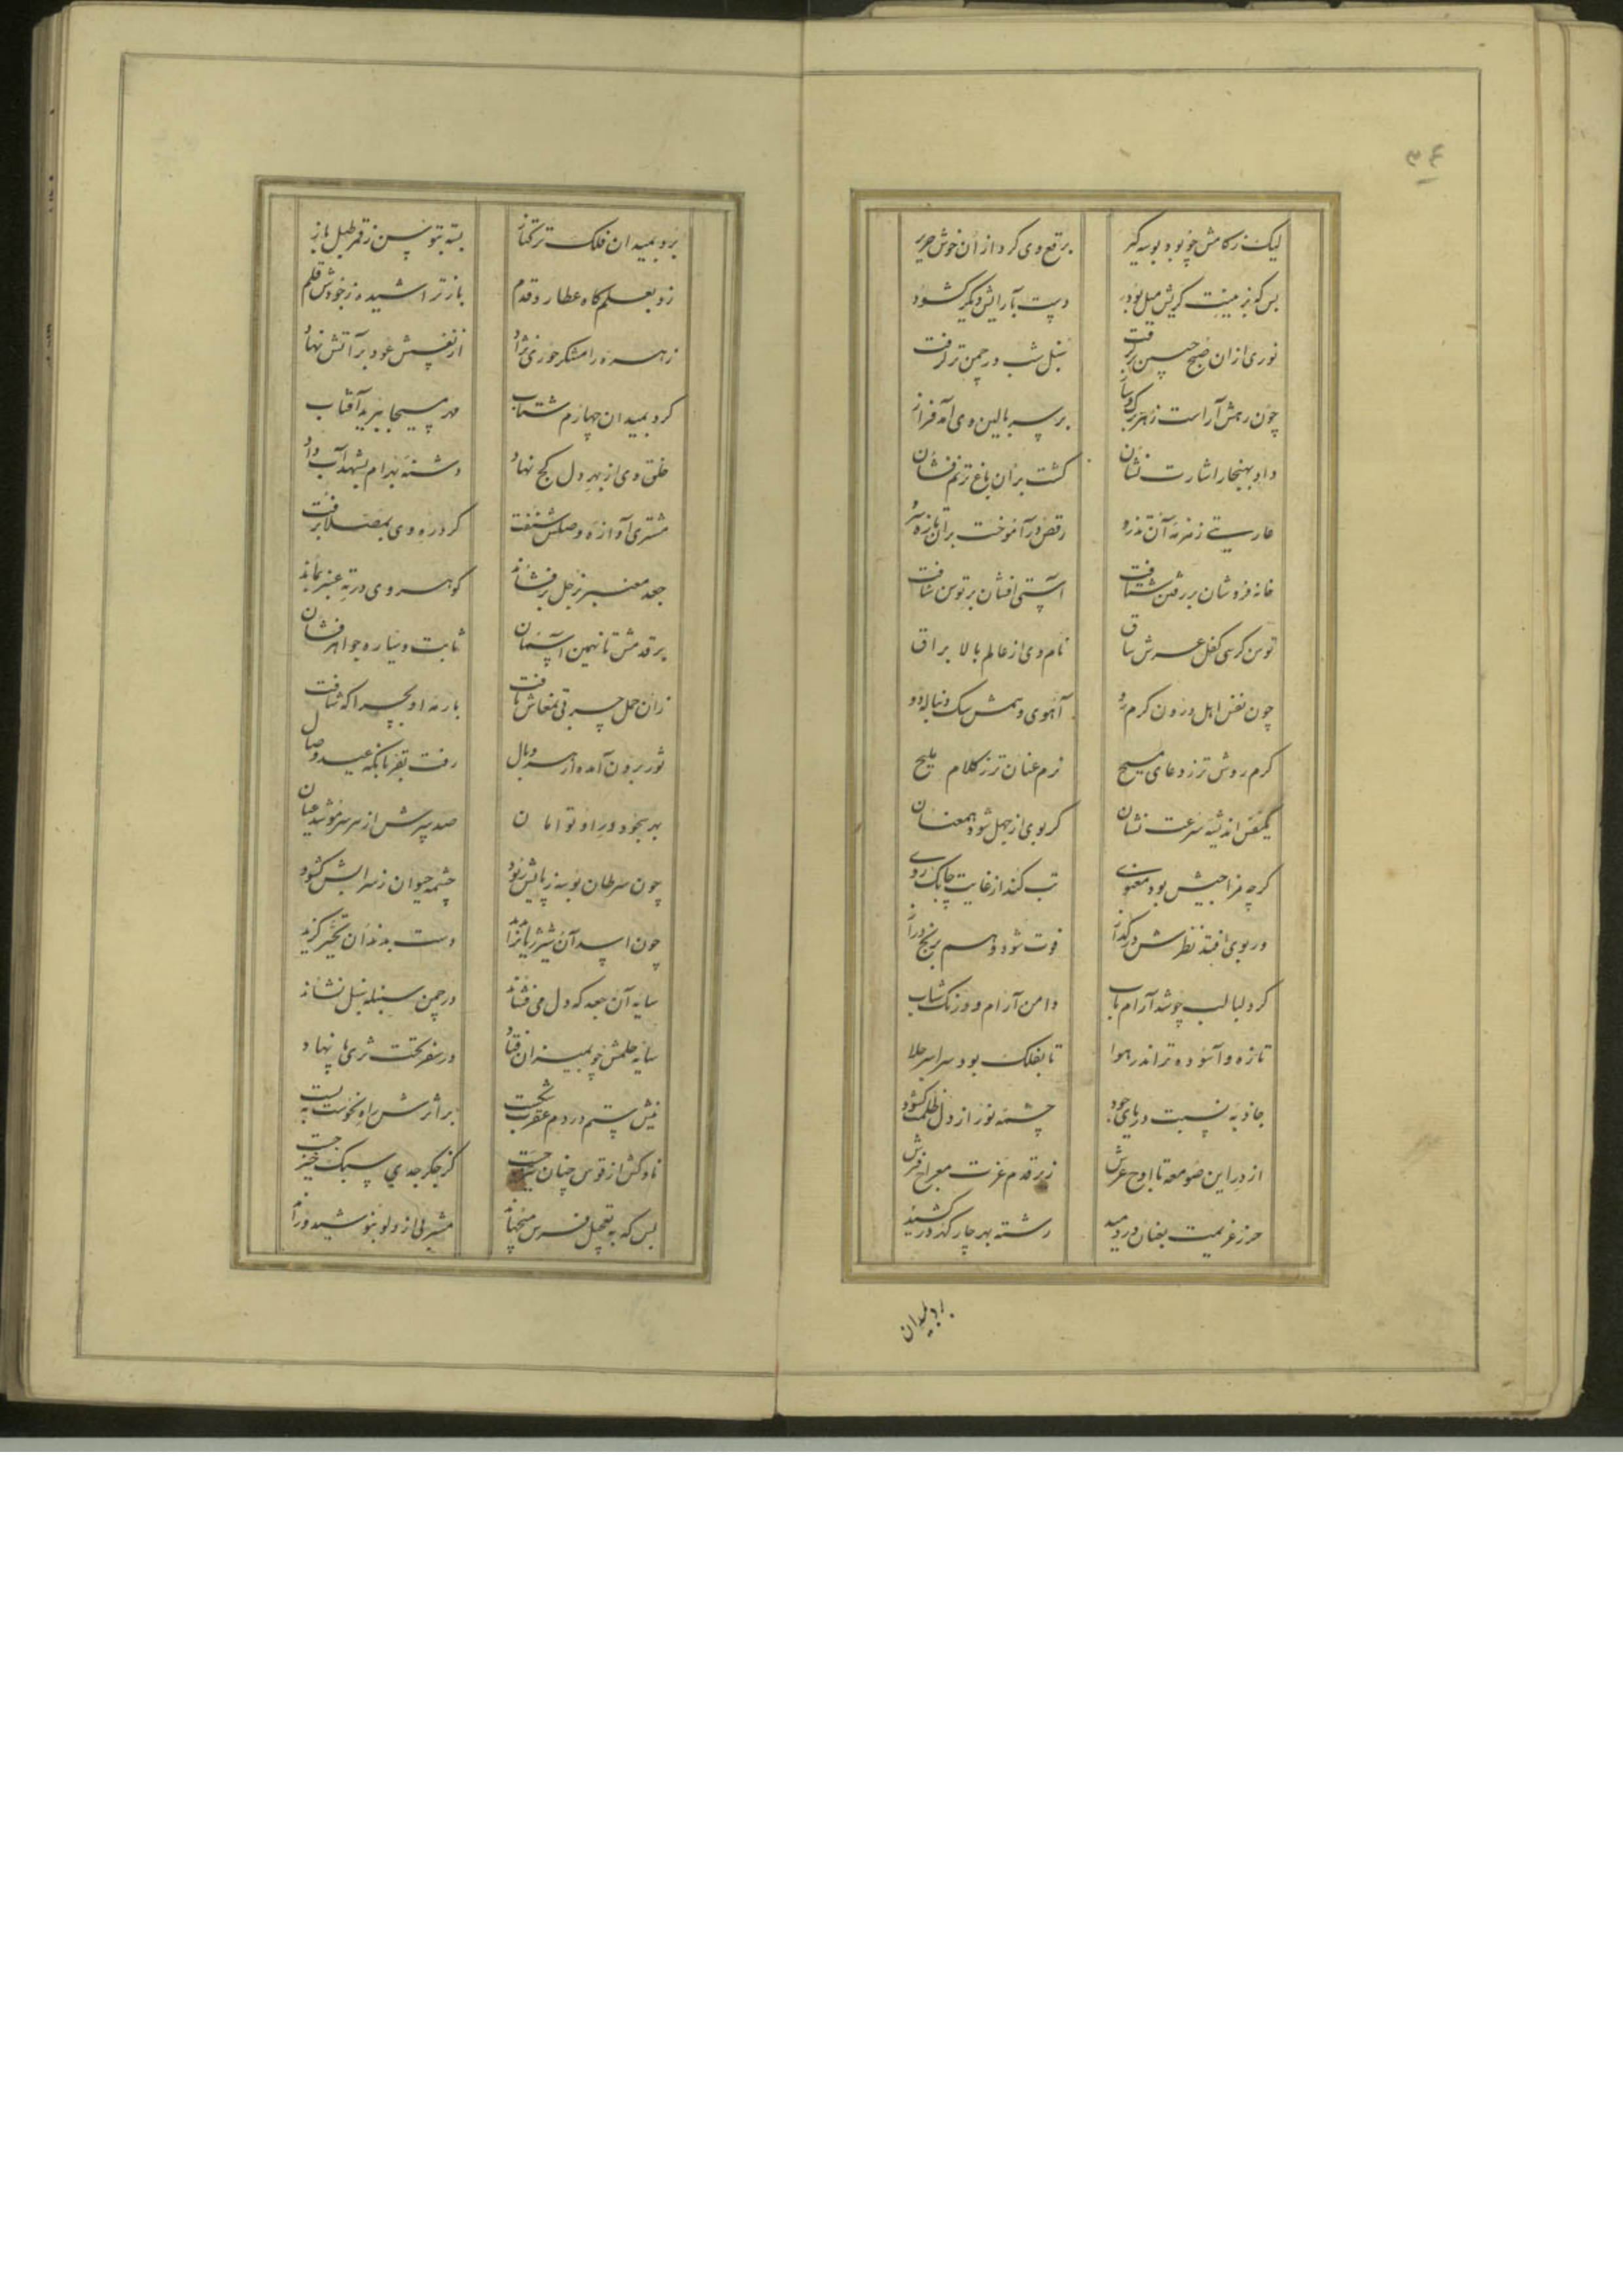 ۳۴
لیک ز کامش چو بود بوسه گیر برقع وی کرد از آن خوش حریر
بس که بزینت کریش میل بود دست بآرایش دیگر گشود
نوری از ان صبح جبین برگرفت سنبل شب در چمن تر گرفت
چون رهش آراست ز هر برگ و ساز بر سر بالین وی آمد فراز
داد بهنجار اشارت نشان گشت بران باغ ترنم فشان
عاریتی زمزمه آن تذرو رقص در آموخت بران تازه سرو
خانه فروشان بر رفتن شتافت آستی افشان بر توسن شتافت
توسن کرسی کفل عرش ساق نام وی از عالم بالا براق
چون نفس اهل درون کرم رو آهوی وهمش سک دنباله دو
کرم روش تر ز دعای مسیح نرم عنان تر ز کلام ملیح
یکنفس اندیشه سرعت نشان کر بوی از جهل شود همعنان
کرچه مزاجیش بود معنوی تب کند از غایت چابک روی
ور بوی افتد نظرش در کداز فوت شود وهم برنج دراز
کرد لبالب چو شد آرام یاب دامن آرام وز رنک شتاب
تازه و آسوده تر اندر هوا تا بفلک بود سراسر جلا
جاذبه نسبت دریای جود چشمه نور از دل ظلمت کشود
از در این صومعه تا اوج عرش زیر قدم عزت معراج فرش
حرز عزیمت بعنان در دمید رشته بهر چار کهر در کشید
برد بمیدان
برد بمیدان فلک ترکتاز بسته بتوسن ز قمر طبل باز
زد بعلمکاه عطارد قدم باز تراشیده ز خودش قلم
زهره رامشکر حوری نژاد از نفسش عود بر آتش نهاد
کرد بمیدان چهارم شتاب مهر مسیحا ببرید آفتاب
خلق وی از بهر دل کج نهاد دشنه بهرام بشهد آب داد
مشتری آوازه وصلش شنفت کرد ره وی بمصلا برفت
جعد معنبر بزحل بر فشاند کوهر وی در ته عنبر بماند
بر قدمش تا نهمین آسمان ثابت و سیاره جواهر فشان
زان حمل چرب تمغاش یافت باره او بچرا که شتافت
ثور برون آمده از سر وبال رفت بقربانکه عید وصال
بهر سجود در او توامان صد پرش از سر سر مو شد عیان
چون سرطان بوسه ز پایش ربود چشمه حیوان ز سرابش کشود
چون اسد آن شیر ژیانرا بدید دست بدندان تحیر کزید
سایه آن جعد که دل می فشاند در چمن سنبله سنبل نشاند
سایه حلمش چو بمیزان فتاد در سفر تحت ثری پا نهاد
نیش ستم در دم عقرب شکست بر اثرش راه نحوست ببست
ناوکش از قوس چنان جست کز جکر جدی سبک خیز جست
بس که بتعجیل فرس میجهاند مشربی از دلو ننوشید و راند